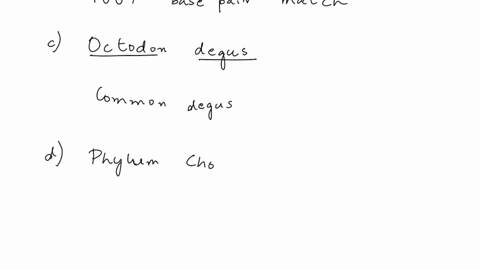 base pair match
c) Octodon degus
Common degus
d) Phylum Cho